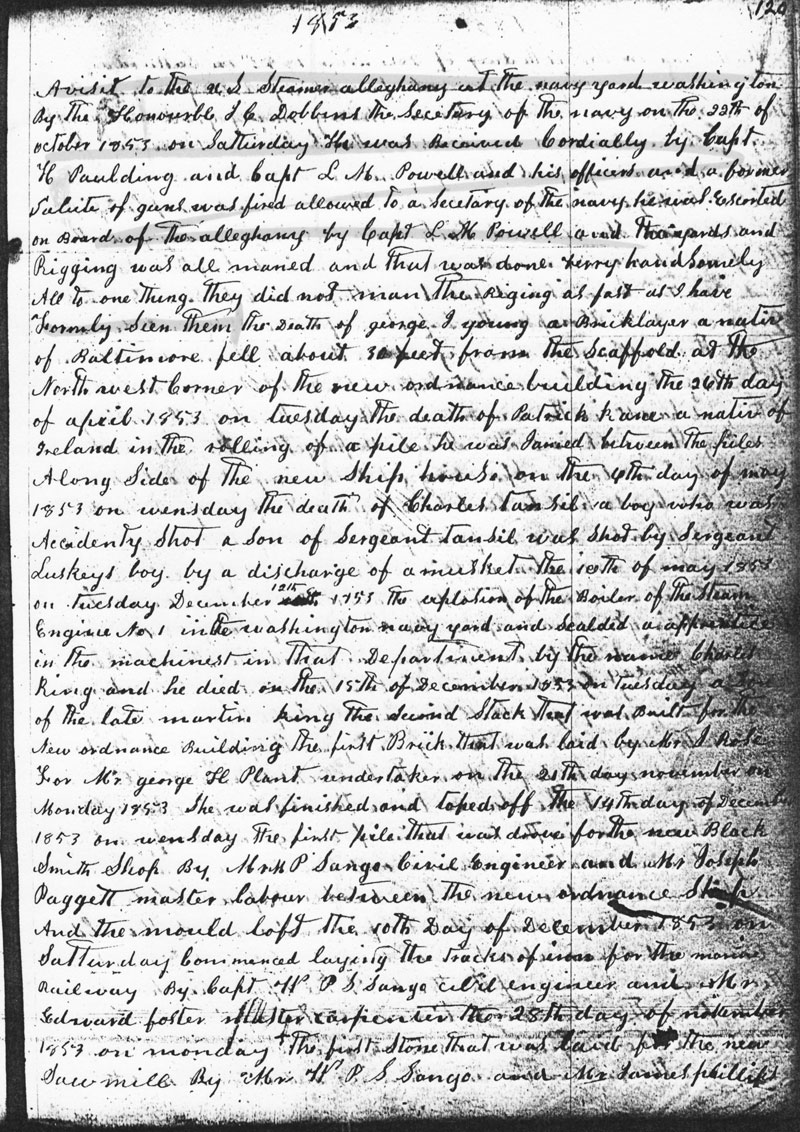 1853
120
A visit to the U S Steamer alleghany at the navy yard washington
By the Honourble J C Dobbins the Secetery of the navy on the 22th of
october 1853 on Satturday He was Received Cordially by Capt
H Paulding and Capt L M Powell and his officers and a former
Salute of guns was fired allowed to a Secetary of the navy he was Escorted
on Board of the alleghany by Capt L M Powell and The yards and
Rigging was all maned and that was done verry handsomely
All to one thing they did not man the Riging as fast as I have
Formly Seen them the Death of george J young a Bricklayer a nativ
of Baltimore fell about 30 feet from the Scaffold at the
North west Corner of the new ordnance building the 26th day
of april 1853 on tuesday the death of Patrick Kane a nativ of
Ireland in the rolling of a pile he was Jamed between the piles
Along Side of the new Ship house on the 4th day of may
1853 on wensday the death of Charles tansil a boy who was
Accidenty Shot a Son of Sergeant tansil was Shot by Sergeant
Luskeys boy by a discharge of a musket the 10th of may 1853
on tuesday December 12th 1853 the explosion of the Boiler of the Steam
Engine No 1 in the washington navy yard and Scalded a apprentice
in the machinest in that Department by the name Charles
King and he died on the 15th of December 1853 on tuesday a Son
of the late martin King the Second Stack that was Built for the
New ordnance Building the first Brick that was laid by Mr J Rose
For Mr george H Plant undertaker on the 21th day november on
Monday 1853 She was finished and toped off the 14th day of December
1853 on wensday the first pile that was drove for the new Black
Smith Shop By Mr P Sango Civil Engineer and Mr Joseph
Paggett master labour between the new ordnance Shop
And the mould loft the 10th Day of December 1853 on
Satturday Commenced laying the Tracks of iron for the marine
Railway By Capt W P S Sango civil engineer and Mr
Edward foster master carpenter the 28th day of november
1853 on monday the first Stone that was laid for the new
Saw mill By Mr W P S Sango and Mr James phillips